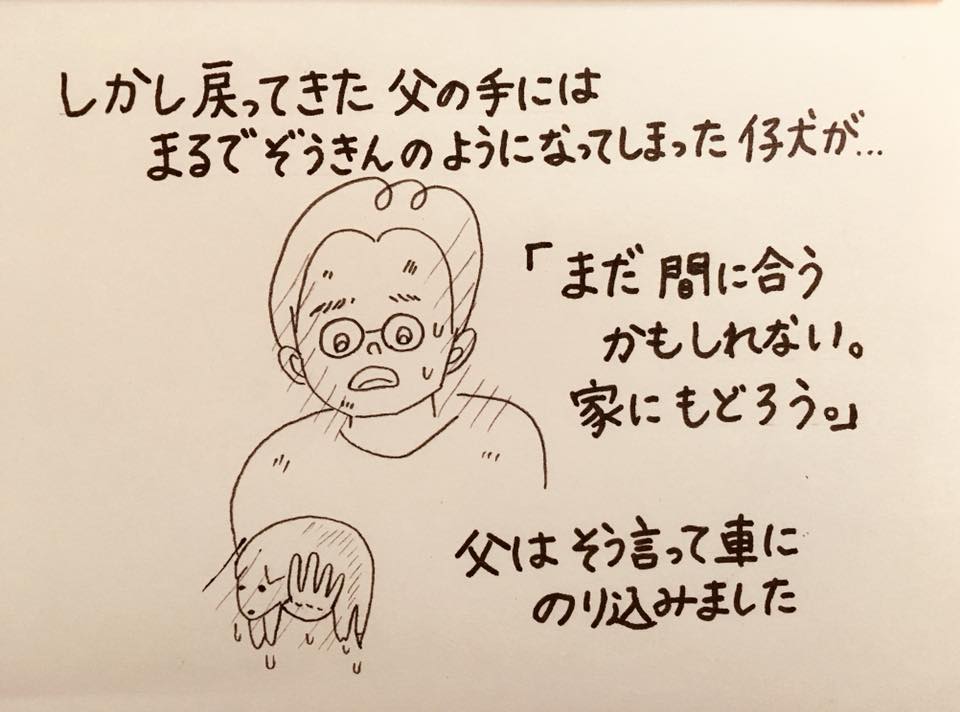 しかし戻ってきた父の手には
まるでぞうきんのようになってしまった仔犬が...
「まだ間に合う
かもしれない。
家にもどろう。」
父はそう言って車に
のり込みました